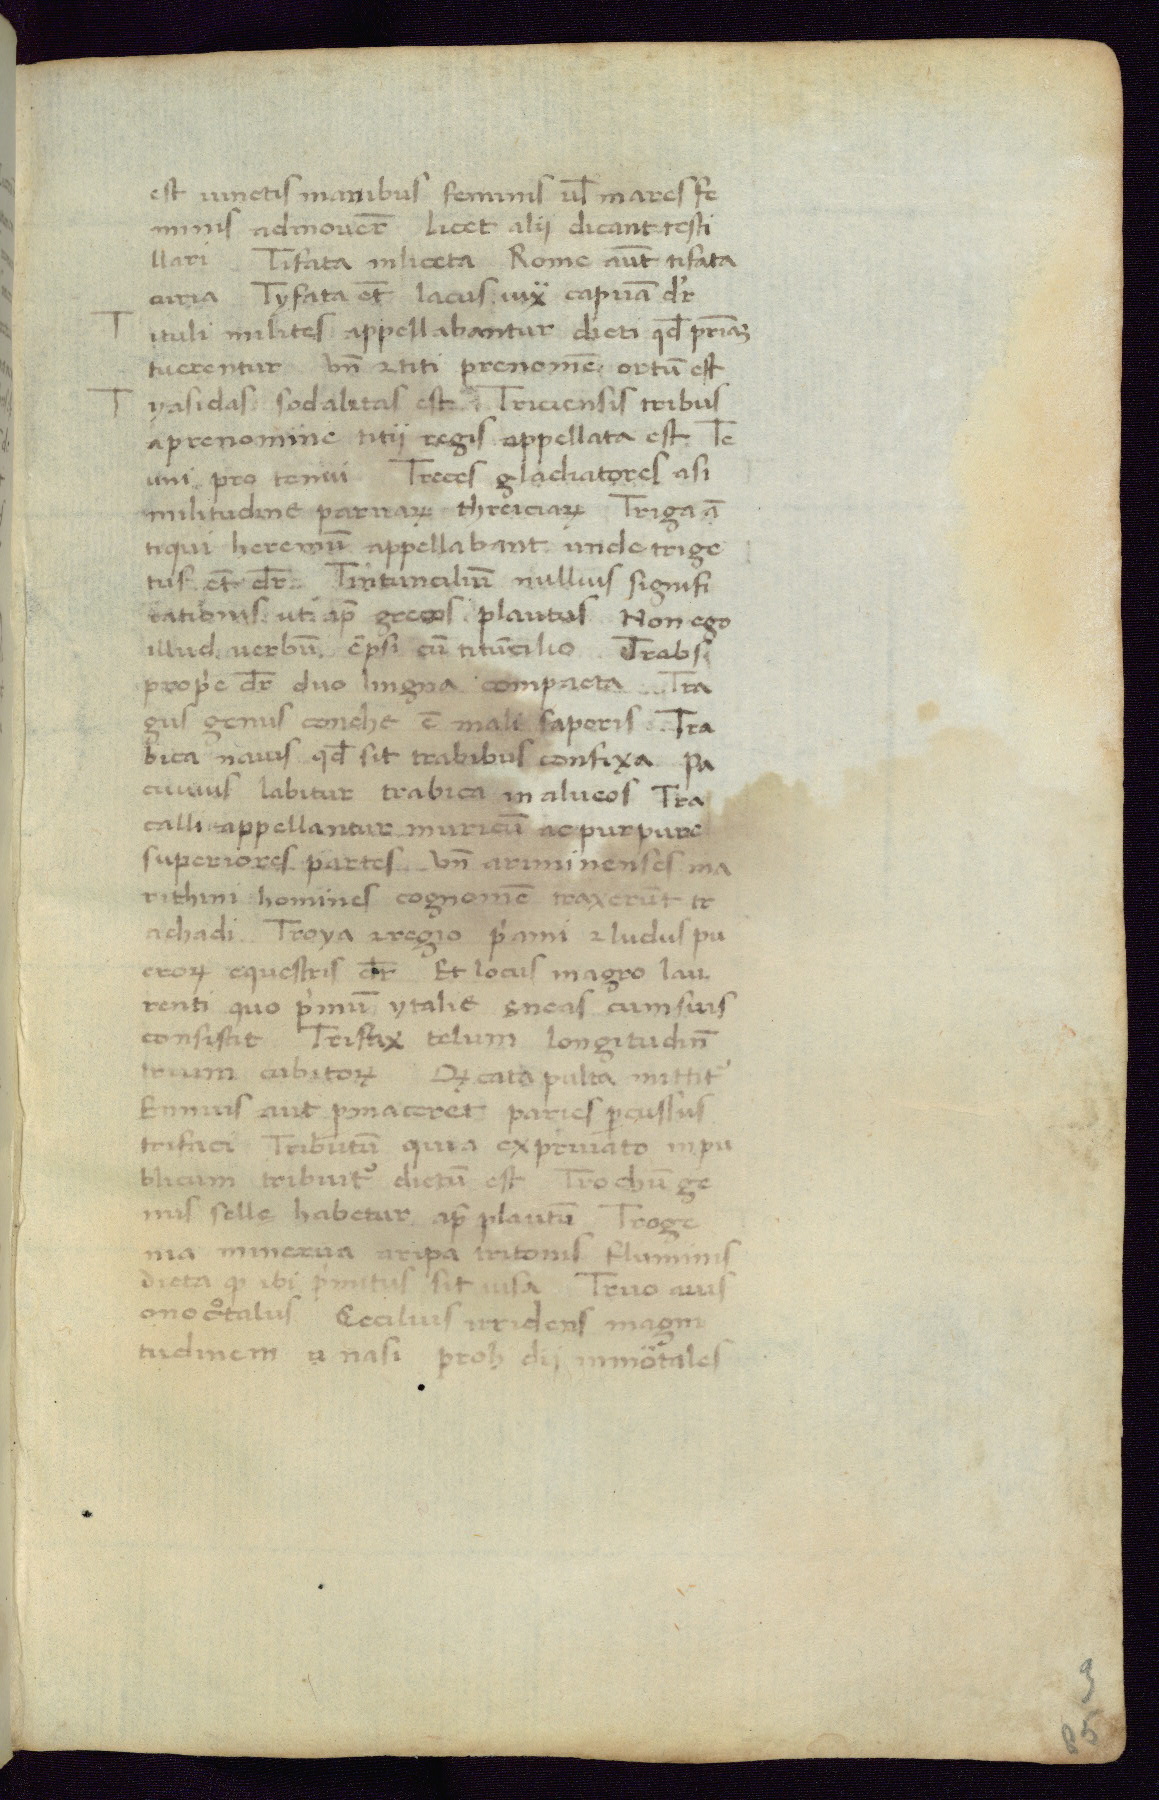 est iunctis manibus feminis ul̄ mares fe
minis admouer̄ licet alij dicant testi
llari Tifata inliceta Rome aūt tifata
curia Tyfata et̄ lacus iux̄ capuā dr̄
Tituli milites appellabantur dicti qd̄ pr̄iaꝝ
tuerentur Vn̄ ⁊ titi prenomē ortū est
Tyasidas sodalitas est Triciensis tribus
a prenomine titij regis appellata est Te
uni pro tenui Treces gladiatores asi
militudine parmaꝝ threiciaꝝ Triga ā
tiqui heremū appellabant unde trige
tus et̄ dr̄ Tintunciliū nullius signifi
cationis uti ap̄ grecos plautus Non ego
illud uerbū ēpsi cū titūcilio Trabs
prop̄e dr̄ duo lingna compacta Tra
gus genus conche ē mali saporis Tra
bica nauis qd̄ sit trabibus confixa Pa
cuuius labitur trabica in alueos Tra
calli appellantur muricū ac purpure
superiores partes Vn̄ ariminenses ma
rithini homines cognomē traxerūt tr
achadi Troya ⁊ regio p̄ami ⁊ ludus pu
eroꝝ equestris dr̄ Et locus in agro lau
renti quo p̄mū ytalie eneas cum suis
consistit Trifax telum longitudin̄
trium cubitoꝝ catapulta mittit᷑
Ennius aut pmaceret paries ꝑcussus
trifaci Tributū quia ex priuato in pu
blicum tribuit᷑ dictū est Trochū ge
nus selle habetur ap̄ plautū Troge
nia minerua a ripa tritonis fluminis
dicta ꝙ ibi p̄mitus sit uisa Truo auis
onocr̄talus Cecilius irridens magni
tudinem u nasi proh dij inmōtales
3
85